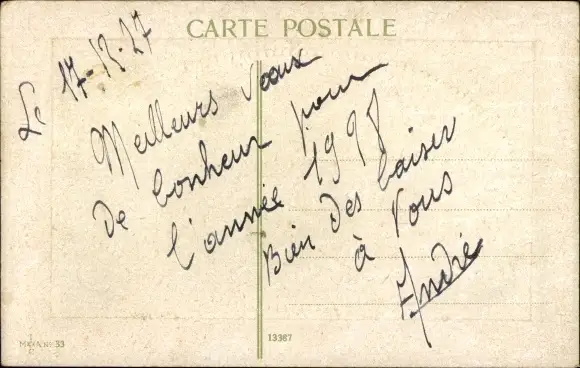 CARTE POSTALE
Le 17-12-27
Meilleurs voeux
de bonheur pour
l'année 1928
Bien des baiser
à vous
André
13367